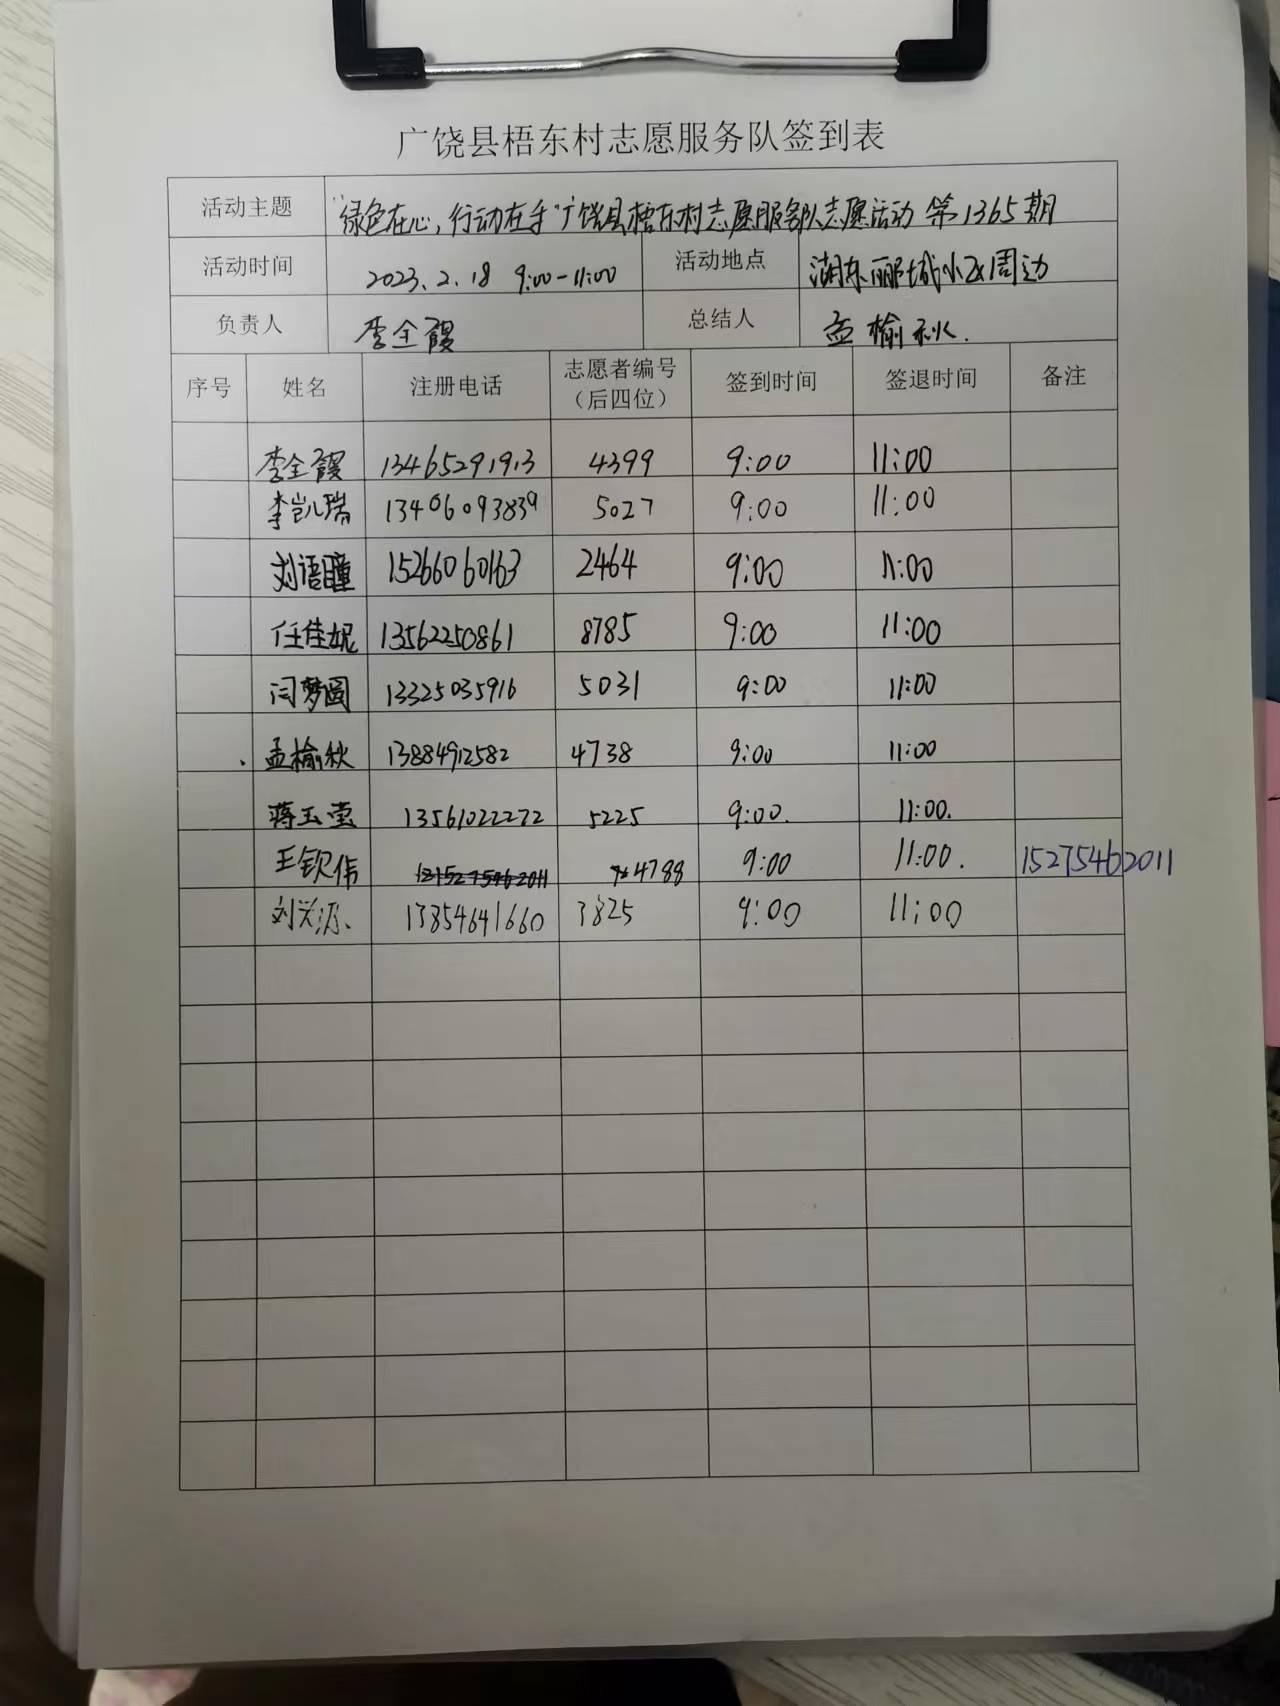 广饶县梧东村志愿服务队签到表
活动主题 "绿色在心，行动在手"广饶县梧东村志愿服务队志愿活动 第1365期
活动时间 2023.2.18 9:00-11:00 活动地点 湖东郦城小区周边
负责人 李全霞 总结人 孟榆秋.
序号 姓名 注册电话 志愿者编号（后四位） 签到时间 签退时间 备注
李全霞 13465291913 4399 9:00 11:00
李凯瑞 13406093839 5027 9:00 11:00
刘语瞳 15266060163 2464 9:00 11:00
任佳妮 13562250861 8785 9:00 11:00
闫梦圆 13325035916 5031 9:00 11:00
孟榆秋 13884912582 4738 9:00 11:00
蒋玉莹 13561022272 5225 9:00. 11:00.
王钦伟 4788 9:00 11:00. 15275462011
刘兴源 13854641660 3825 9:00 11:00